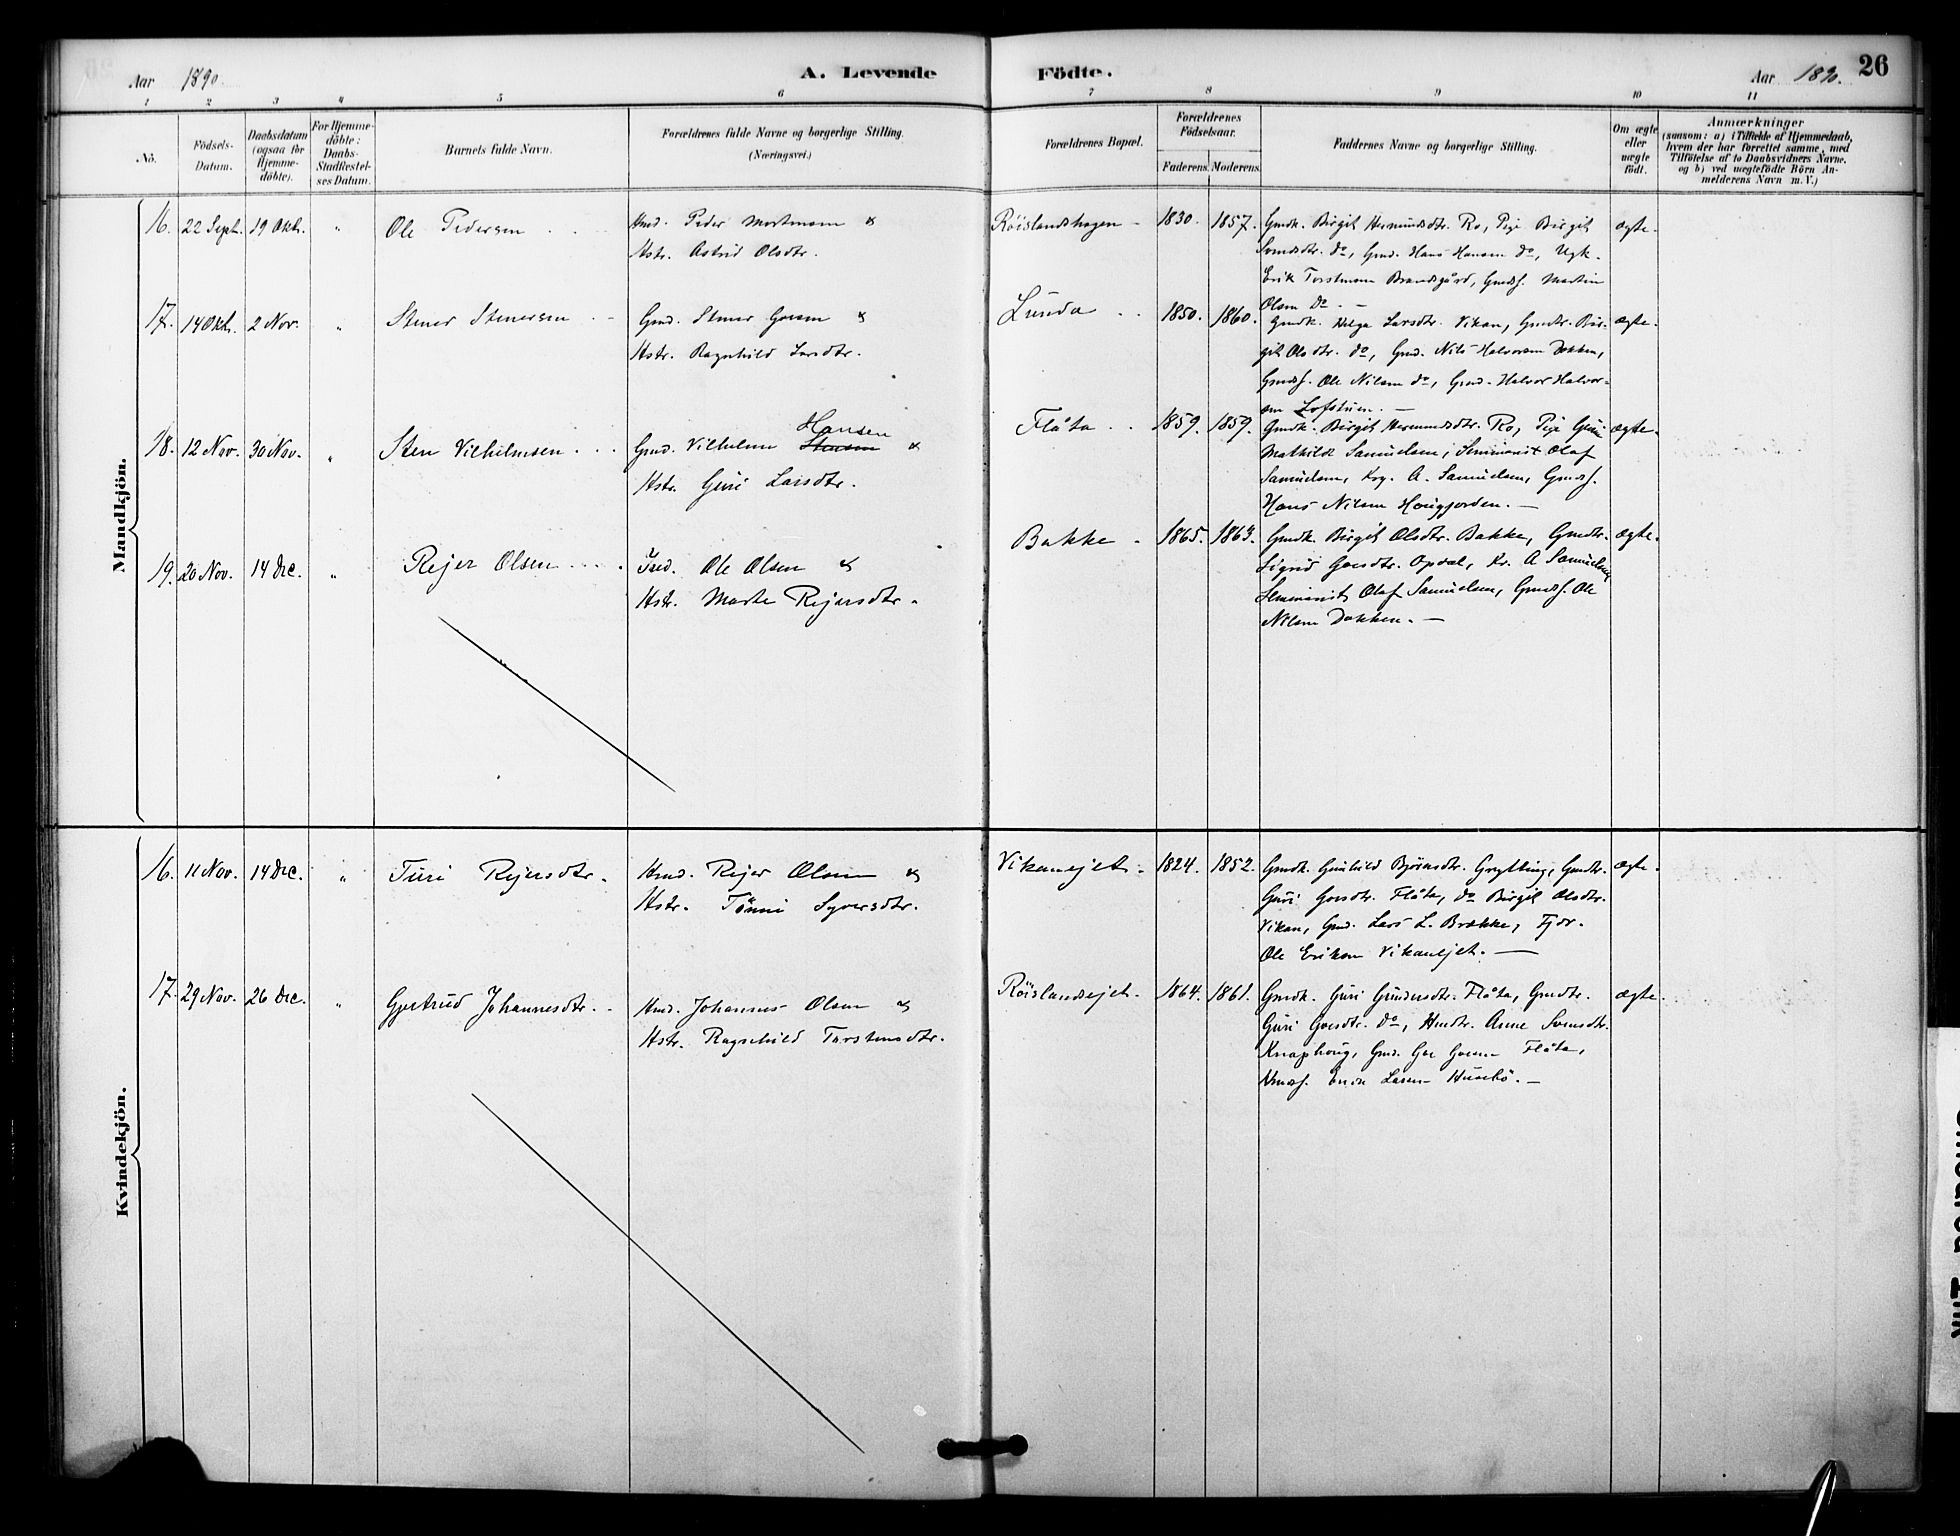 Aar 1890.
A. Levende
Födte.
Aar 1890.
26
1 2 3 4 5 6 7 8 9 10 11
No.
Födsels-
Datum.
Daabsdatum
(ogsaa for
Hjemme-
döbte).
For Hjemme-
döbte:
Daabs-
Stadfæstel-
ses Datum.
Barnets fulde Navn.
Forældrenes fulde Navne og borgerlige Stilling.
(Næringsvei.)
Forældrenes Bopæl.
Forældrenes
Födselsaar.
Faderens. Moderens.
Faddernes Navne og borgerlige Stilling.
Om ægte
eller
uægte
födt.
Anmærkninger
(saasom: a) i Tilfælde af Hjemmedaab,
hvem der har forrettet samme, med
Tilföielse af to Daabsvidners Navne.
og b) ved uægtefödte Börn An-
melderens Navn m. V.)
Mandkjön.
16. 22 Sept. 19 Okt. " Ole Pedersen
Hmd. Peder Mortensen &
Hstr. Astrid Olsdtr.
Röislandshagen - 1830. 1857.
Gmdk. Birgit Hermundsdtr. Ro, Pige Birgit
Svendsdtr. do, Gmd. Hans Hansen do, Ugk.
Erik Torstensen Brandsgård, Gmdsf. Martin
Olsen do. -
ægte.
17. 14 Okt. 2 Nov. " Stener Stenersen
Gmd. Stener Goesen &
Hstr. Ragnhild Larsdtr.
Lunda 1850. 1860.
Gmdk. Helga Larsdtr. Vikan, Gmdtr. Bir-
git Olsdtr. do, Gmd. Nils Halvorsen Dokken,
Gmdsf. Ole Nilsen do, Gmd. Halvor Halvor-
sen Lofstuen. -
ægte.
18. 12 Nov. 30 Nov. " Sten Vilhelmsen
Hansen
Gmd. Vilhelm Stensen &
Hstr. Guri Larsdtr.
Flåta 1859. 1859.
Gmdk. Birgit Hermundsdtr. Ro, Pige Guri
Mathilde Samuelsen, Seminarist Olaf
Samuelsen, Krg. A. Samuelsen, Gmdsf.
Hans Nilsen Hougjorden. -
ægte.
19. 20 Nov. 14 Dec. " Rejer Olsen
Ole Olsen &
Hstr. Marte Rejersdtr.
Bakke - 1865. 1863.
Gmdk. Birgit Olsdtr. Bakke, Gmdtr.
Sigrid Goesdtr. Opdal, Kr. A Samuelsen
Seminarist Olaf Samuelsen, Gmdsf. Ole
Nilsen Dokken. -
ægte.
Kvindekjön.
16. 11 Nov. 14 Dec. " Turi Rejersdtr.
Hmd. Rejer Olsen &
Hstr. Tönni Syversdtr.
Vikanejet. 1824. 1852.
Gmdk. Gunhild Björnsdtr. Grytting, Gmdtr.
Guri Goesdtr. Flåta, do Birgit Olsdtr.
Vikan, Gmd. Lars L. Brække, Tjor.
Ole Eriksen Vikanejet. -
ægte.
17. 29 Nov. 26 Dec. " Gjertrud Johannesdtr.
Hmd. Johannes Olsen &
Hstr. Ragnhild Torstensdtr.
Röislandsejet. 1864. 1861.
Gmdk. Guri Gundersdtr. Flåta, Gmdtr.
Guri Goesdtr. do, Hmdtr. Anne Svensdtr.
Knaphoug, Gmd. Goe Goesen Flåta,
Larsen Husebö. -
ægte.